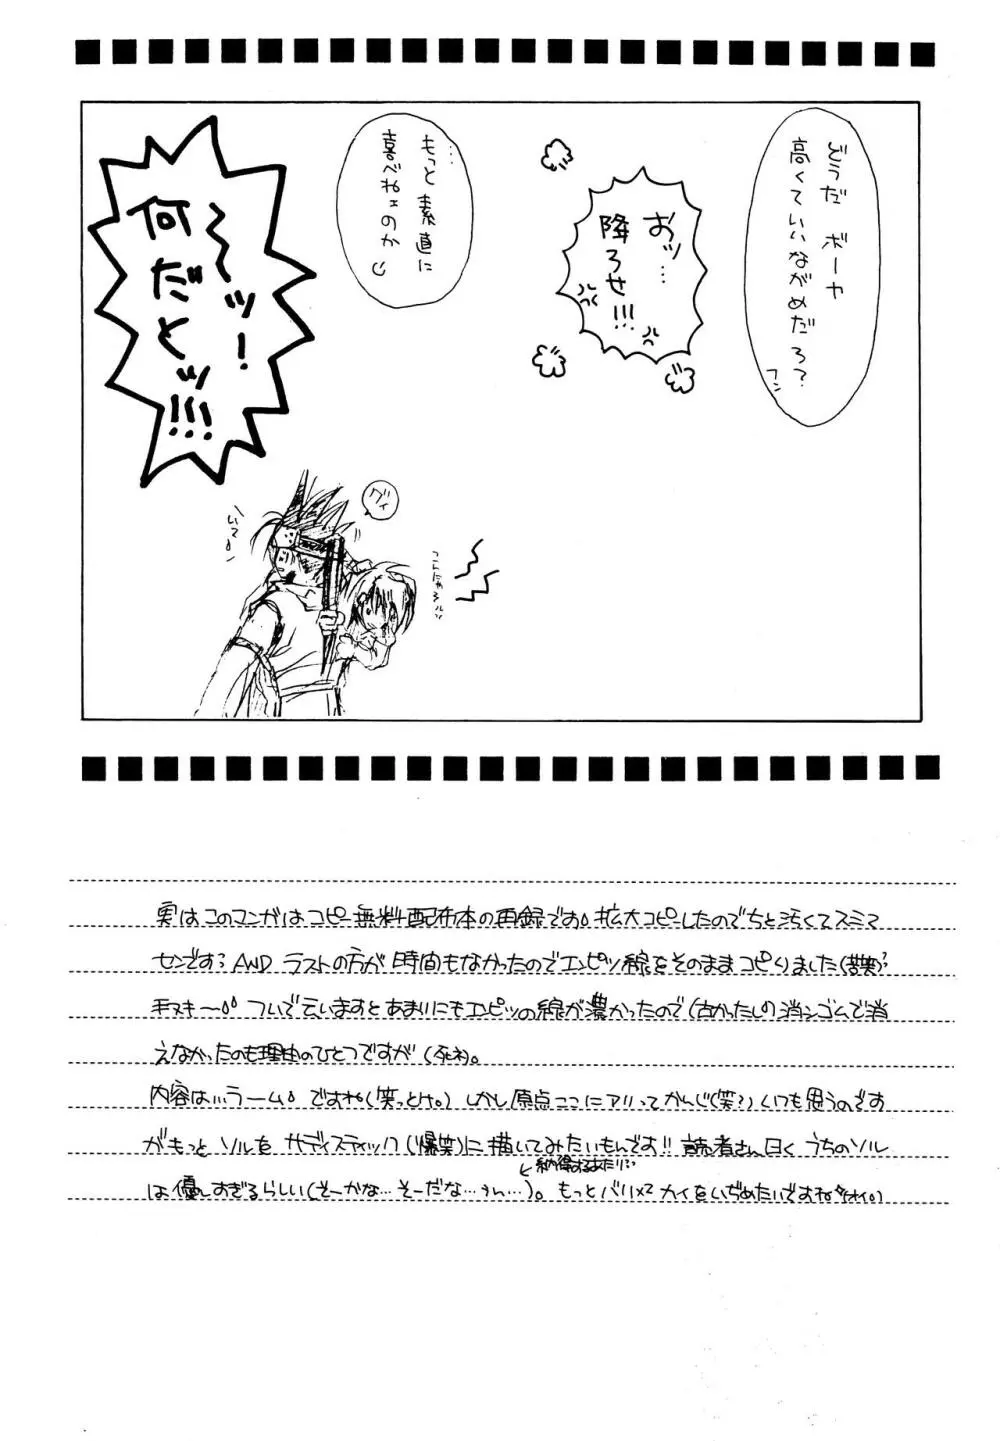 どうだ ボーヤ
高くていいながめだろ？
フン
おッ…
降ろせ!!!
…もっと素直に
喜べねェのか
〜〜ッ!
何だとッ!!!
グイ
いてっ
こんにゃろ
実はこのマンガはコピー無料配布本の再録です。拡大コピーしたのでちと汚くてスミマ
センです? AND ラストの方が時間もなかったのでエンピツ線をそのままコピりました(苦笑)?
手ヌキ〜 ついで云いますとあまりにもエンピツの線が濃かったので(古かったし)消シゴムで消
えなかったのも理由のひとつですが(死ネ)。
内容は…うーむ。ですね(笑っとけ。)しかし原点ここにアリってかんじ(笑?)いつも思うのです
がもっとソルをサディスティック(爆笑)に描いてみたいもんです!! 読者さん曰くうちのソル
納得するあたり…
は優しすぎるらしい(そーかな…そーだな…うん…)。もっとバリバリカイをいぢめたいですね